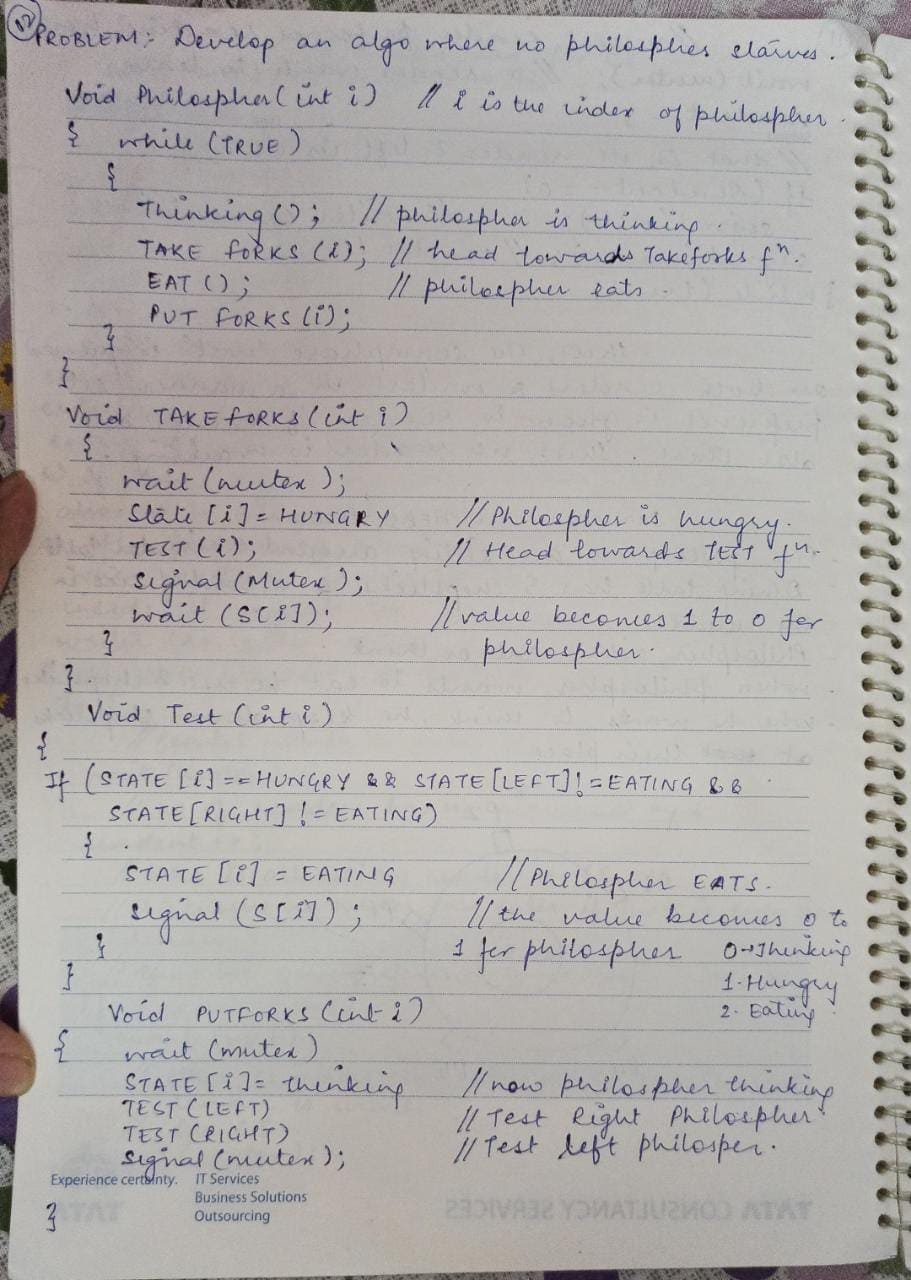 12
PROBLEM:- Develop an algo where no philospher starves.
Void Philospher(int i) // i is the index of philospher.
{ while (TRUE)
{
Thinking(); // philospher is thinking.
TAKE forks (i); // head towards Takeforks fⁿ.
EAT (); // philospher eats.
PUT forks (i);
}
}
Void TAKE forks (int i)
{
wait (mutex);
State [i] = HUNGRY // Philospher is hungry.
TEST (i); // Head towards TEST fⁿ.
Signal (Mutex);
wait (S[i]); // value becomes 1 to 0 for
} philospher.
}
Void Test (int i)
{
If (STATE [i] == HUNGRY && STATE [LEFT] != EATING &&
STATE [RIGHT] != EATING)
{
STATE [i] = EATING // Philospher EATS.
signal (S[i]); // the value becomes 0 to
} 1 for philospher 0→Thinking
} 1-Hungry
Void PUTFORKS (int i) 2. Eating
{ wait (mutex)
STATE [i] = thinking // now philospher thinking
TEST (LEFT) // Test Right Philospher
TEST (RIGHT) // Test left philosper.
signal (mutex);
Experience certainty. IT Services
Business Solutions
Outsourcing
}
TATA CONSULTANCY SERVICES
TATA